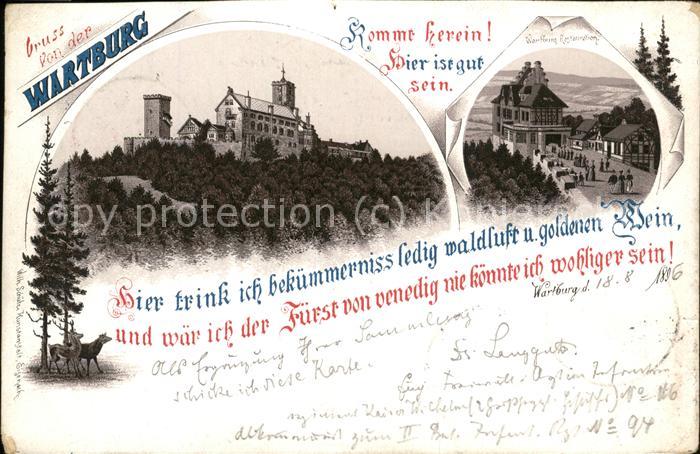 Gruss
von der
WARTBURG
Kommt herein!
Hier ist gut
sein.
Wartburg Restauration.
Hier trink ich bekümmerniss ledig waldluft u. goldenen Wein,
und wär ich der Fürst von venedig nie könnte ich wohliger sein!
Wartburg d. 18. 8 1896
Als Ergänzung Ihrer Sammlung
schicke ich diese Karte.
Dr. Langguth
regiment Kaiser Wilhelm (2. Großhzgl. Hessische) No 116
zum II Bat. Infant. Rgt No 94
copy protection by